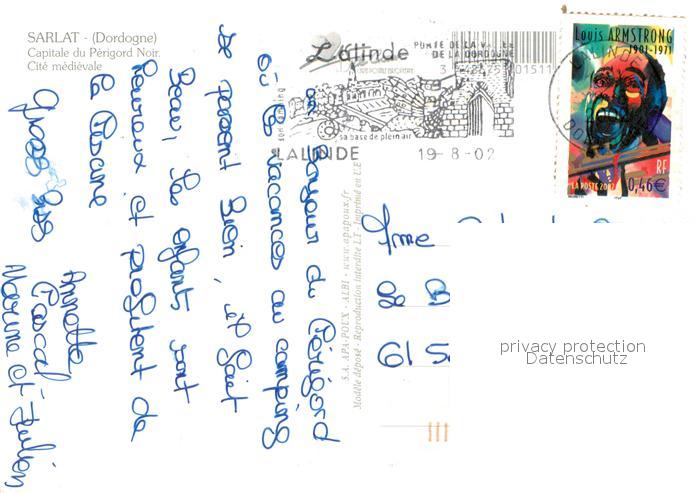 SARLAT - (Dordogne)
Capitale du Périgord Noir.
Cité médiévale
Lalinde
PORTE DE LA VALLEE
DE LA DORDOGNE
son camping
sa base de plein air
LALINDE 19-8-02
Louis ARMSTRONG
1901-1971
RF
LA POSTE 2002 0,46€
un bonjour du Périgord
où les vacances au camping
se passent bien, il fait
Beau, les enfants sont
heureux et profitent de
la Piscine
Gros Bisous
Annette
Pascal
Marine et Julien
S.A. APA-POUX - ALBI - www.apapoux.fr
Modèle déposé - Reproduction interdite LT - Imprimé en U.E.
Mme
Le B
615
privacy protection
Datenschutz